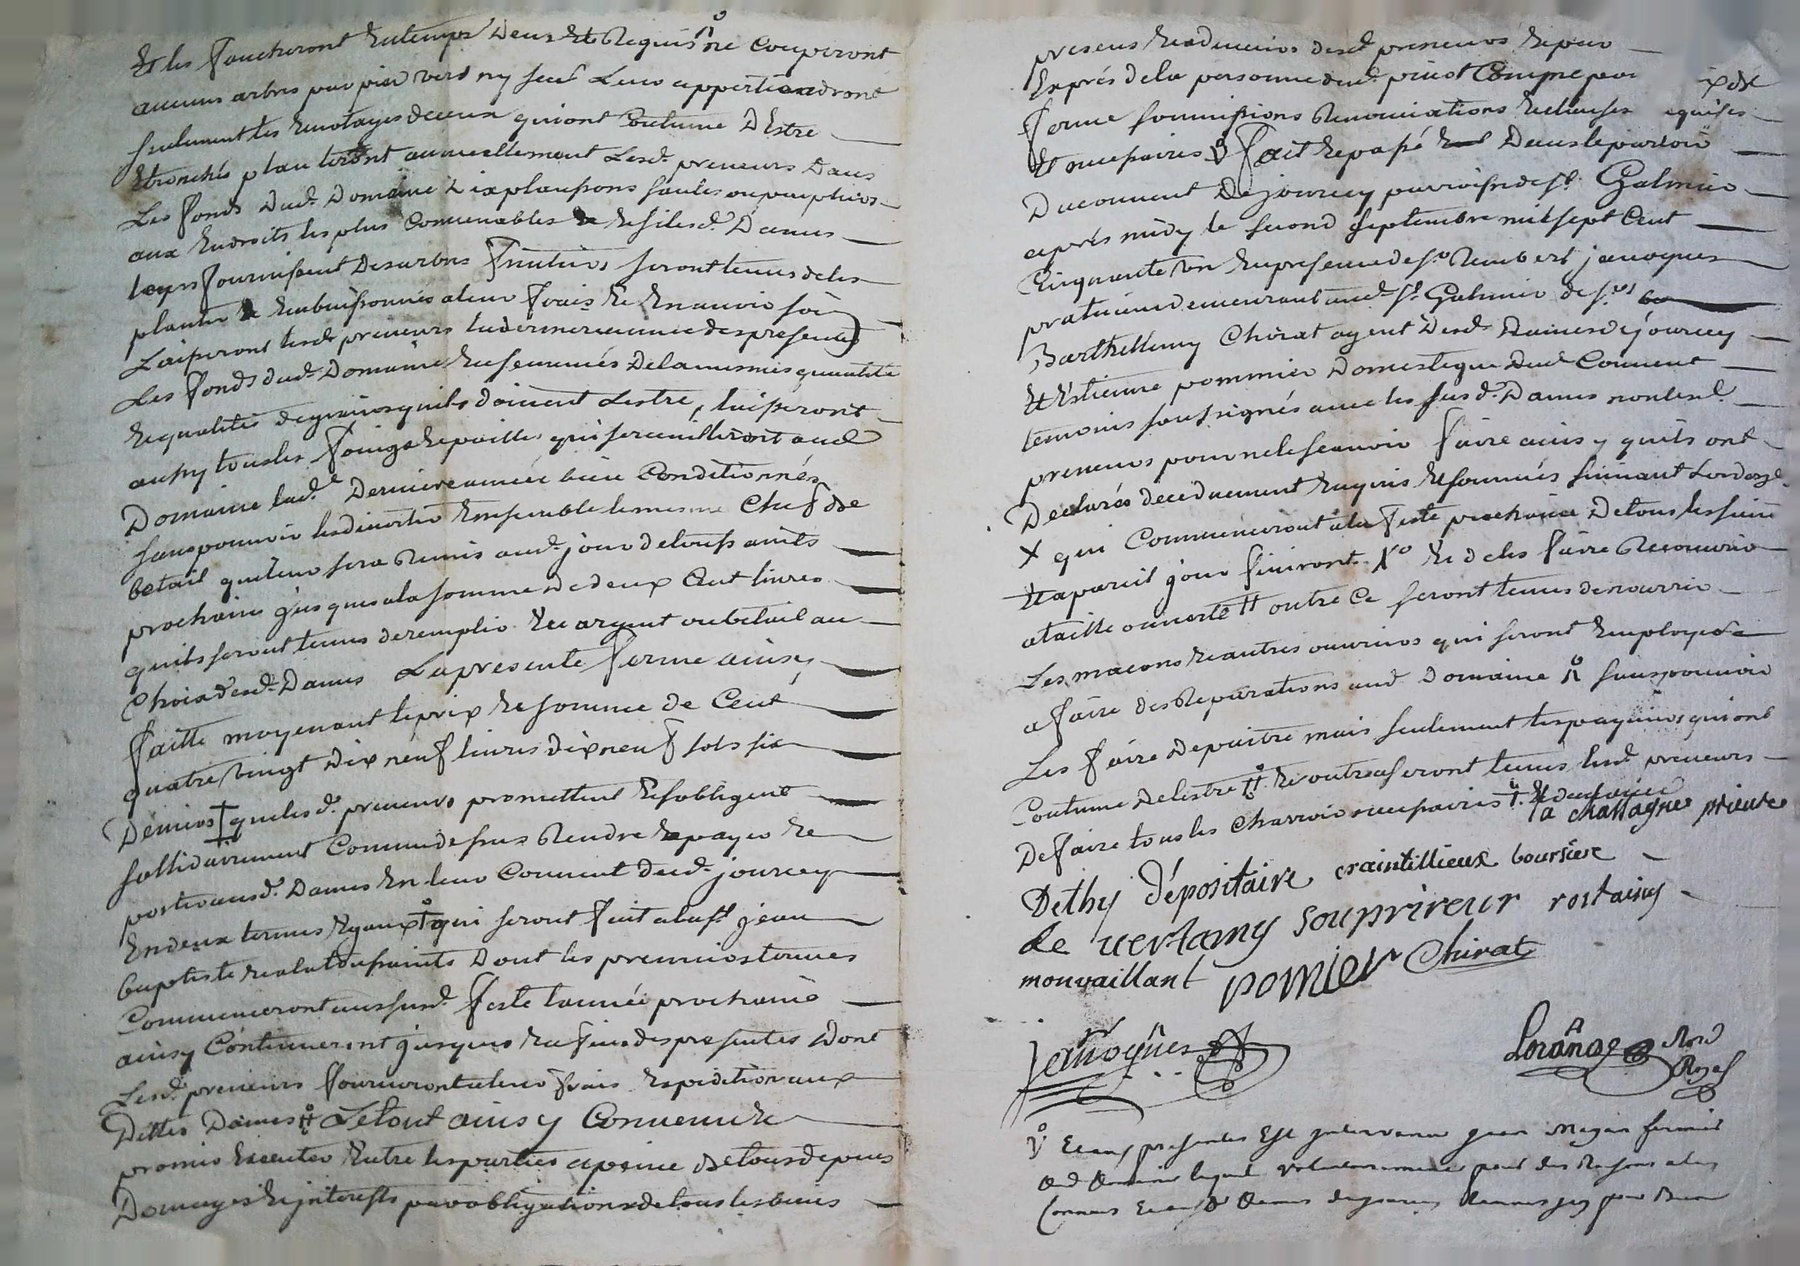 Et les faucheront En temps Deux Et Requis ne Couperont
aucuns arbres par pied verd ny secq Leur appartiendront
seulement les Emotages de ceux qui ont Coutume D'Estre
Etronchés planteront annuellement Lesd. preneurs Dans
Les fonds Dud. Domaine Dix plansons saules ou peupliers
aux Endroits les plus Convenables Et si lesd. Dames
leurs fournissent Des arbres fruitiers seront tenus de les
planter Et Embuissonner a leur frais Et En avoir soin
Laisseront lesd. preneurs la derniere année des presentes
Les fonds dud. Domaine Ensemencés De la mesme quantité
Et qualité de grains qu'ils doivent L'estre, laisseront
aussy tous les foings Et pailles qui se cueilliront aud.
Domaine lad. Derniere année bien Conditionnés
sans pouvoir les divertir Ensemble le mesme Chef de
betail qui leur sera Remis aud. jour de toussaints
prochains jusques a la somme De deux Cent livres
qu'ils seront tenus de remplir En argent ou betail au
Choix desd. Dames La presente ferme ainsy
faitte moyenant le prix Et somme de Cent
quatre vingt Dix neuf livres dix neuf sols six
Deniers que lesd. preneurs promettent Et s'obligent
sollidairement Comme dessus Rendre Et payer Et
porter ausd. Dames En leur Couvent dud. jourcey
En deux termes Egaux qui seront fait a la st jean
baptiste Et a la toussaints Dont les premiers termes
Commenceront aux susd. feste l'année prochaine
ainsy Continueront jusques En fin des presentes Dont
Lesd. preneurs fourniront a leur frais Expedition aux
Dittes Dames Le tout ainsy Convenu Et
promis Executer Entre les parties a peine De tous depens
Domages Et interests par obligations de tous les biens
presens Et advenir desd. preneurs Et par
Exprés de la personne dud. pinot Comme pour
ferme soumissions Renonciations Et clauses requises
Et necessaires fait Et passé Dans le parloir
Du couvent De jourcey parroisse de st. Galmier
aprés midy le second septembre mil sept Cent
Cinquante un En presence de sr. Rembert janoyues
praticien demeurant aud. st. Galmier de sr.
Barthellemy Chirat agent Desd. Dames de jourcey
Et Estienne pommier Domestique Dud. Couvent
temoins soussignés avec les susd. Dames non lesd.
preneurs pour ne le scavoir faire ainsy qu'ils ont
Declarés de ce duement Enquis Et sommés suivant L'ord.
X qui Commenceront a la feste prochaine De tous les saints
Et a pareil jour finiront. Et de les faire Recouvrir
a taille ouverte outre Ce seront tenus de nourrir
Les macons Et autres ouvriers qui seront Employés
a faire des Reparations aud. Domaine sans pouvoir
Les faire Depaitre mais seulement les paquiers qui ont
Coutume De l'estre Et outre seront tenus lesd. preneurs
De faire tous les charrois necessaires
la chassagne prieure
Dethy dépositaire craintillieux boursiere
de vertamy souprireur rostaing
monvaillant pomier Chirat
janoyues
Loránge Nore Royal
En ces presentes Est intervenu jean